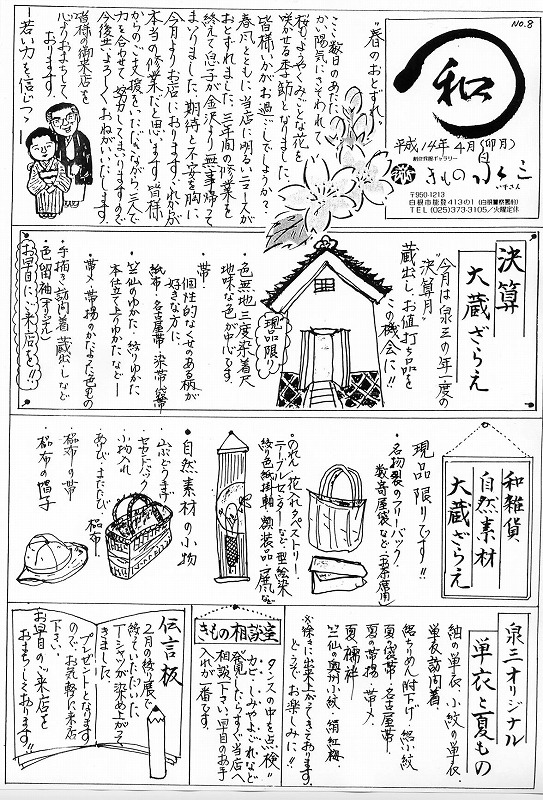 NO.8
和
平成14年4月(卯月)
創作呉服ギャラリー
きもの 泉三
いずさん
〒950-1213
白根市能登413の1(白根警察署前)
TEL (025)373-3105／火曜定休
"春のおとずれ"
ここ数日のあたた
かい陽気にさそわれて
桜もよろしくみごとな花を
咲かせる季節となりました。
皆様いかがお過ごしでしょうか？
春風とともに当店に明るいニュースが
おとずれました。三年間の修業を
終えて息子が金沢より無事帰って
まいりました。期待と不安を胸に
今月よりお店におります。これからが
本当の修業だと思います。皆様
からのご支援をいただきながら三人で
力を合わせて努力してまいりますので
今後共よろしくおねがいいたします。
皆様の御来店を
心よりおまちして
おります。
―若い力を信じつつ―
決算
大蔵ざらえ
今月は泉三の年一度の
"決算月"
蔵出しお値打ち品を
この機会に!!
現品限り
・色無地三度染着尺
地味な色が中心です。
・帯!
個性的なくせのある柄が
好きな方に。
紙布・名古屋帯・染帯・袋帯
・竺仙のゆかた、絞りゆかた
本仕立て上りゆかたなど―
・帯〆、帯揚のかたよった色もの
・手描き訪問着 蔵出しなど
・色留袖(オリジナル)
お早目にご来店を!!
和雑貨
自然素材
大蔵ざらえ
現品限りです!!
・名物裂のティーバック
数寄屋袋など(お茶席用)
・のれん・花入れ・タペストリー・
テーブルセンターなど―型絵染
絞り色紙掛軸・額装品・屏風など
・自然素材の小物
山ぶどう手さげ
セカンドバック
小物入れ
あけび・またたび・科布
・科布の帯
・科布の帽子
泉三オリジナル
単衣と夏もの
紬の単衣、小紋の単衣、
単衣訪問着
絽ちりめん附下げ、絽小紋
夏の袋帯・名古屋帯
夏の帯揚 帯〆
夏襦袢
竺仙の奥州小紋 絹紅梅、
※徐々に出来上がってきております。
どうぞお楽しみに!!
きもの相談室
タンスの中を点検"
カビ、しみやよごれなど
発見したらすぐ当店へ
相談下さい。早目のお手
入れが一番です。
伝言板
2月の絞り展で
絞っていただいた
Tシャツが染め上がって
きました。
プレゼントとなります
ので、お気軽に来店
下さい。
お早目のご来店を
おまちしております!!